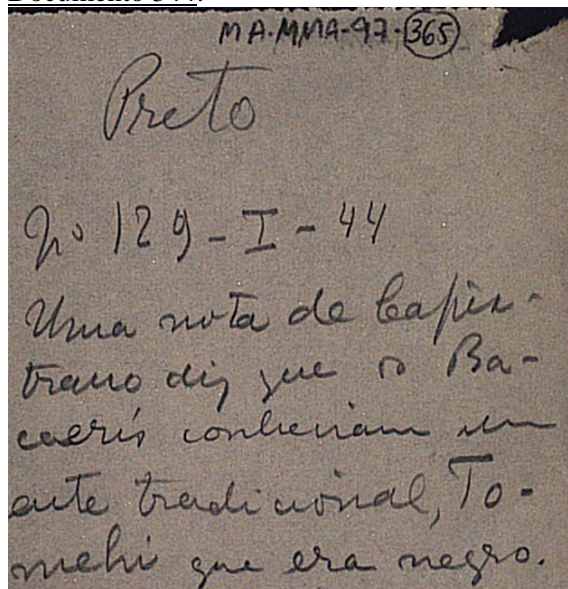 MA-MMA-97-365
Preto
Nº 129-I-44
Uma nota de Capis-
trano diz que os Ba-
caeris conheciam um
ente tradicional, To-
mehi que era negro.